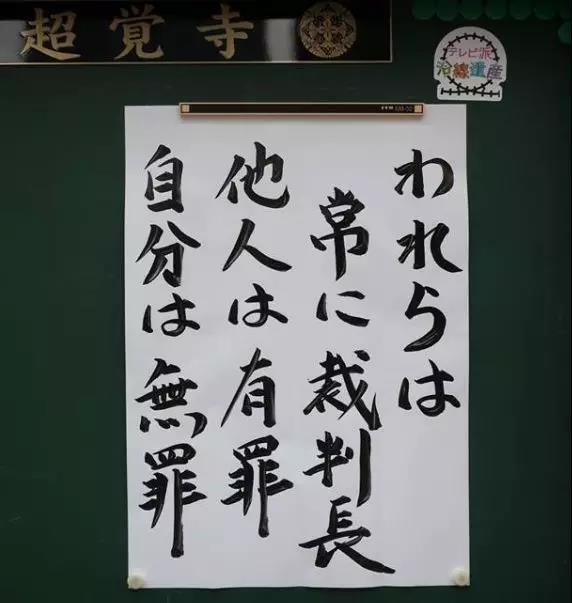 超覚寺
テレビ派
沿線遺産
われらは
常に裁判長
他人は有罪
自分は無罪